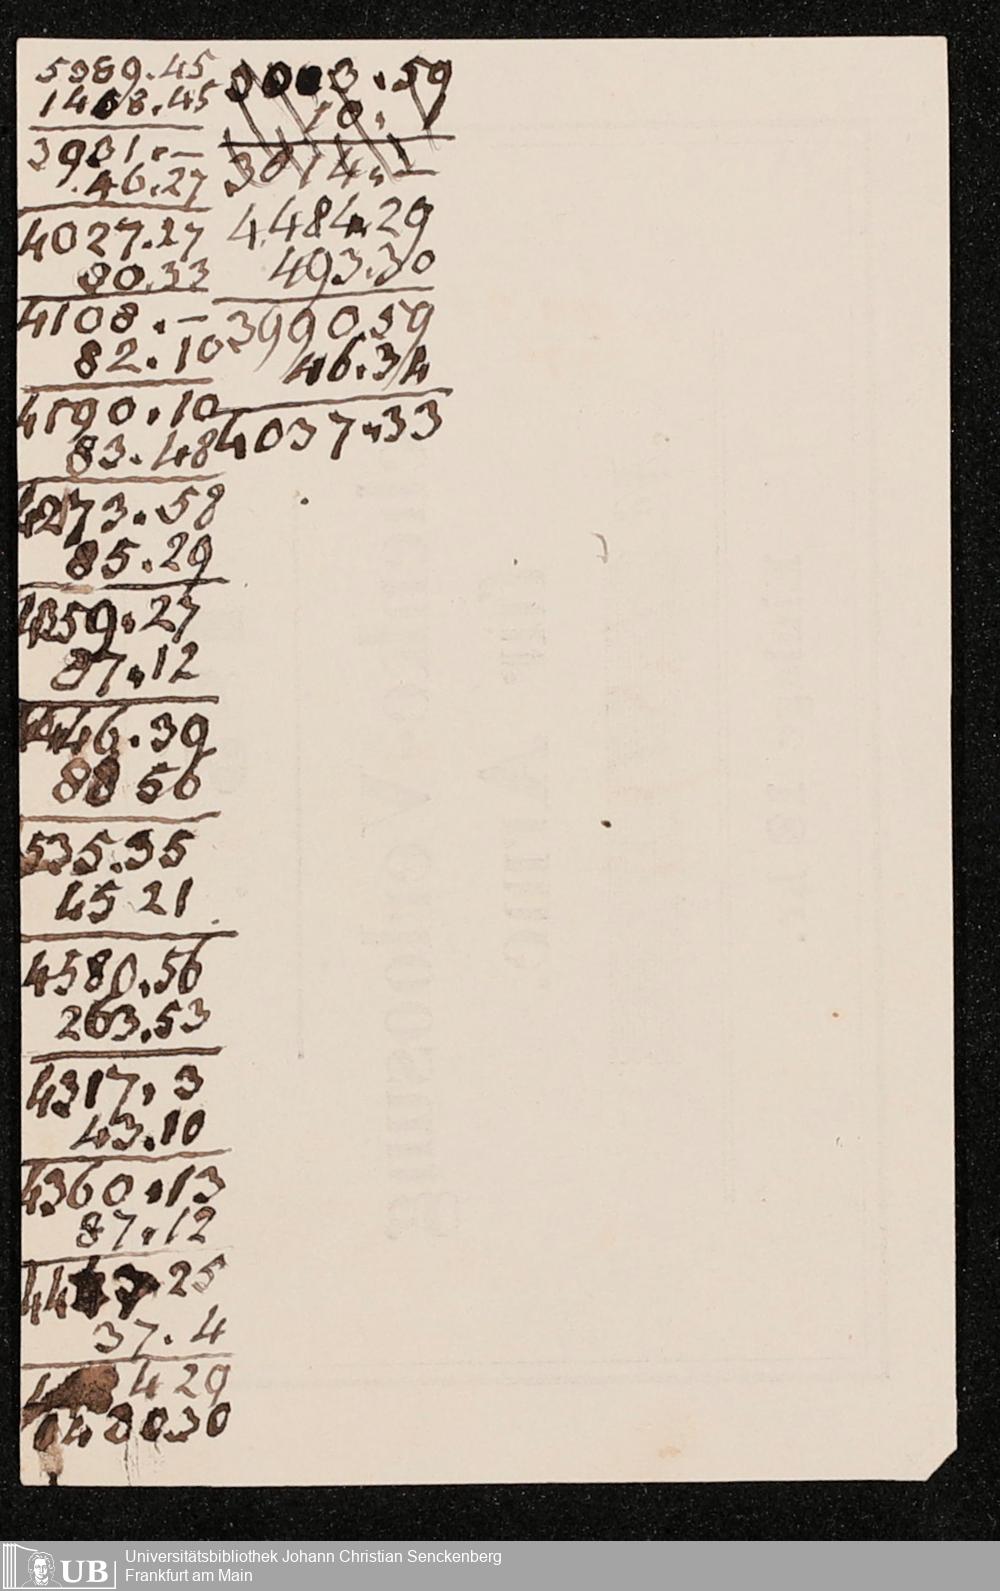 5389.45
1408.45
3981.—
46.27
4027.27
80.33
4108.—
82.10
4190.10
83.48
4273.58
85.29
4359.27
87.12
4446.39
88 56
535.35
45 21
4580.56
263.53
4317.3
43.10
4360.13
87.12
4447 25
37.4
4 29
048030
3003.59
10.1
3014.—
4.484.29
493.30
3990.59
46.34
4037.33
UB
Universitätsbibliothek Johann Christian Senckenberg
Frankfurt am Main